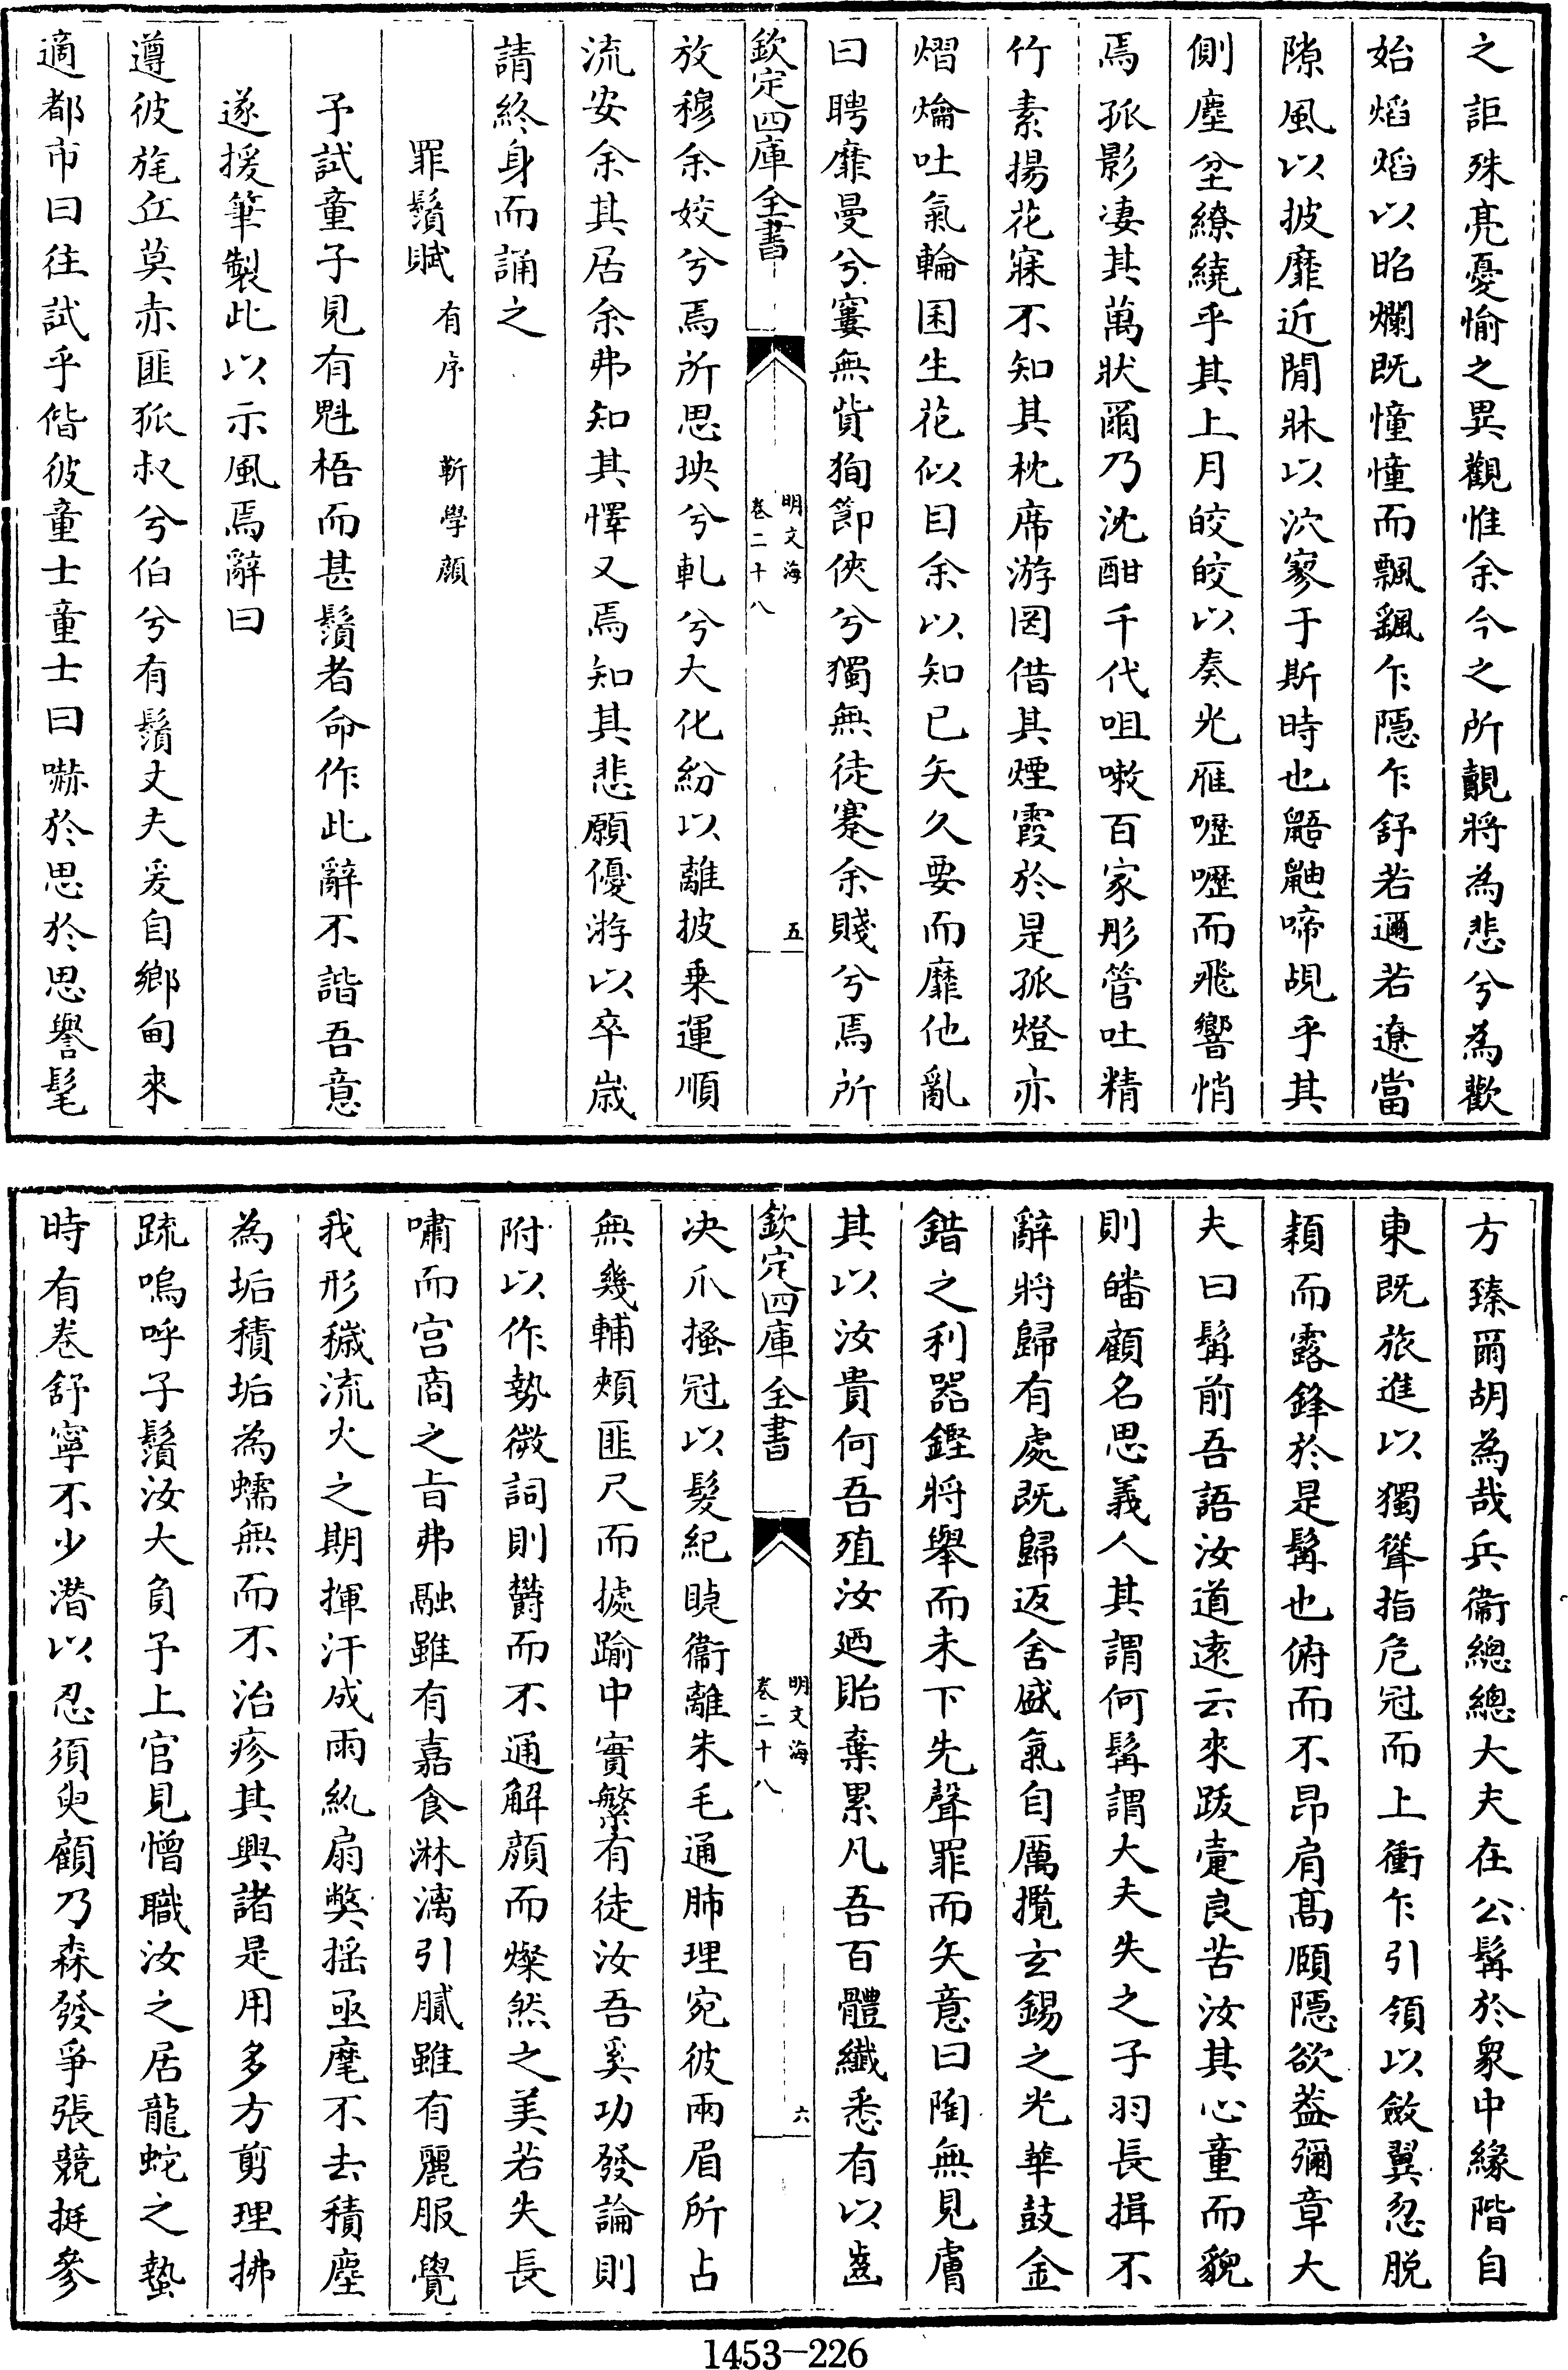 之詎殊亮憂愉之異觀惟余今之所覯將為悲兮為歡
始焰焰以昭爛既憧憧而飄颻乍隱乍舒若邇若遼當
隙風以披靡近閒牀以泬寥于斯時也鼯鼬啼覘乎其
側塵坌繚繞乎其上月皎皎以奏光雁嚦嚦而飛響悄
焉孤影凄其萬狀爾乃沈酣千代咀嗽百家彤管吐精
竹素揚花寐不知其枕席游罔借其煙霞於是孤燈亦
熠爚吐氣輪囷生花似目余以知已矢久要而靡他亂
曰聘靡曼兮窶無貲狥節俠兮獨無徒蹇余賤兮焉所
欽定四庫全書
明文海
卷二十八
五
放穆余姣兮焉所思坱兮軋兮大化紛以離披乗運順
流安余其居余弗知其懌又焉知其悲願優游以卒歳
請終身而誦之
罪鬚賦有序 靳學顔
予試童子見有魁梧而甚鬚者命作此辭不諧吾意
遂援筆製此以示風焉辭曰
遵彼旄丘莫赤匪狐叔兮伯兮有鬚丈夫爰自鄉甸來
適都市曰往試乎偕彼童士童士曰嚇於思於思譽髦
方臻爾胡為哉兵衞總總大夫在公髯於衆中緣階自
東既旅進以獨聳指危冠而上衝乍引領以斂翼忽脱
穎而露鋒於是髯也俯而不昂肩髙頤隱欲葢彌章大
夫曰髯前吾語汝道逺云來跋疐良苦汝其心童而貌
則皤顧名思義人其謂何髯謂大夫失之子羽長揖不
辭將歸有處既歸返舍盛氣自厲攬玄錫之光華鼓金
錯之利器鏗將舉而未下先聲罪而矢意曰陶無見膚
其以汝貴何吾殖汝廼貽棄累凡吾百體纎悉有以齒
欽定四庫全書
明文海
卷二十八
六
决爪搔冠以髮紀睫衞離朱毛通肺理宛彼兩眉所占
無幾輔頰匪尺而據踰中實繁有徒汝吾奚功發論則
附以作勢微詞則欝而不通解顔而燦然之美若失長
嘯而宫商之㫖弗融雖有嘉食淋漓引膩雖有麗服覺
我形穢流火之期揮汗成雨紈扇獘揺亟麾不去積塵
為垢積垢為蠕無而不治疹其興諸是用多方剪理拂
疏嗚呼予鬚汝大負予上官見憎職汝之居龍蛇之蟄
時有卷舒寧不少潛以忍須臾顧乃森發爭張競挺參
1453-226